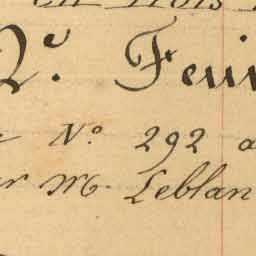 en Trois
2e. Feui
No. 292 a
er M. Leblan